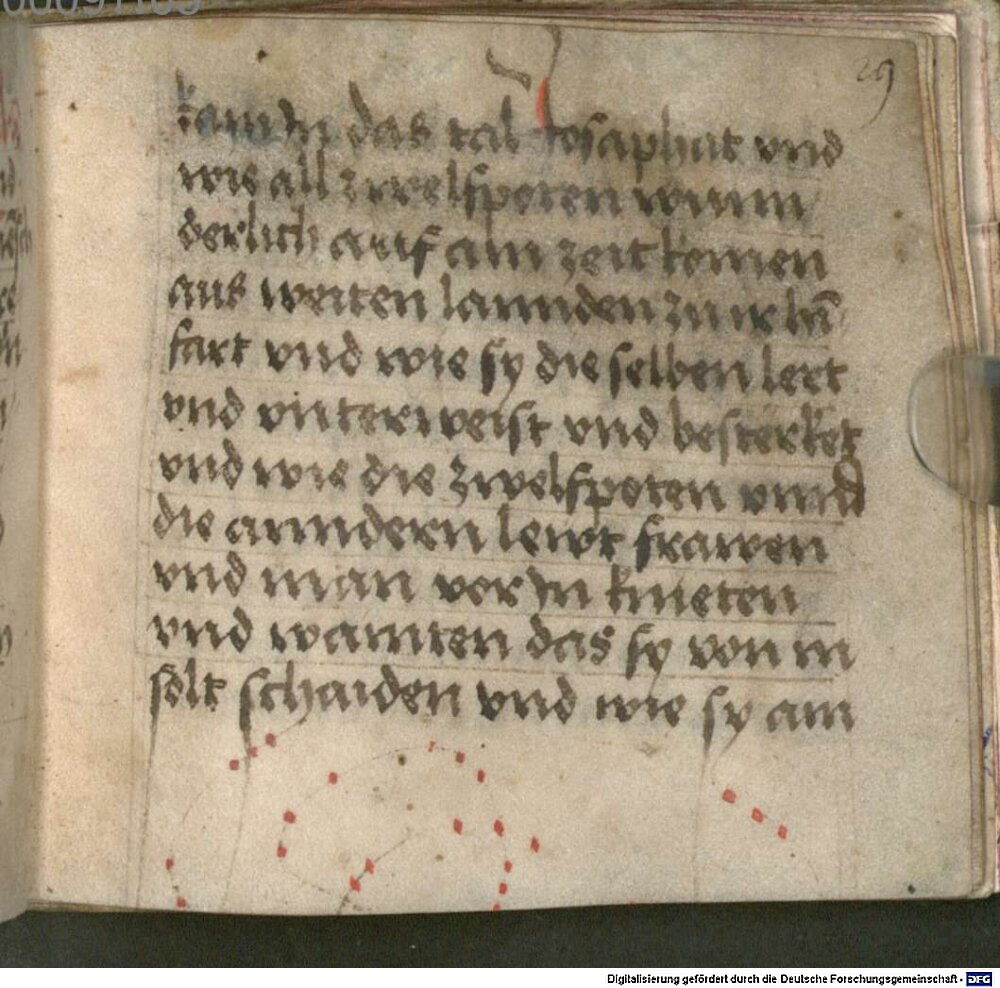 29
kam in das tal Josaphat vnd
wie all zwelfpoten wunn
derlich auf ain zeit komen
aus weiten lannden zu ir hin
fart vnd wie sy die selben lert
vnd vnterweist vnd besterket
vnd wie die zwelfpoten vnnd
die anndern lewt frawen
vnd man vor in knieten
vnd wainten das sy von in
solt schaiden vnd wie sy am
Digitalisierung gefördert durch die Deutsche Forschungsgemeinschaft - DFG